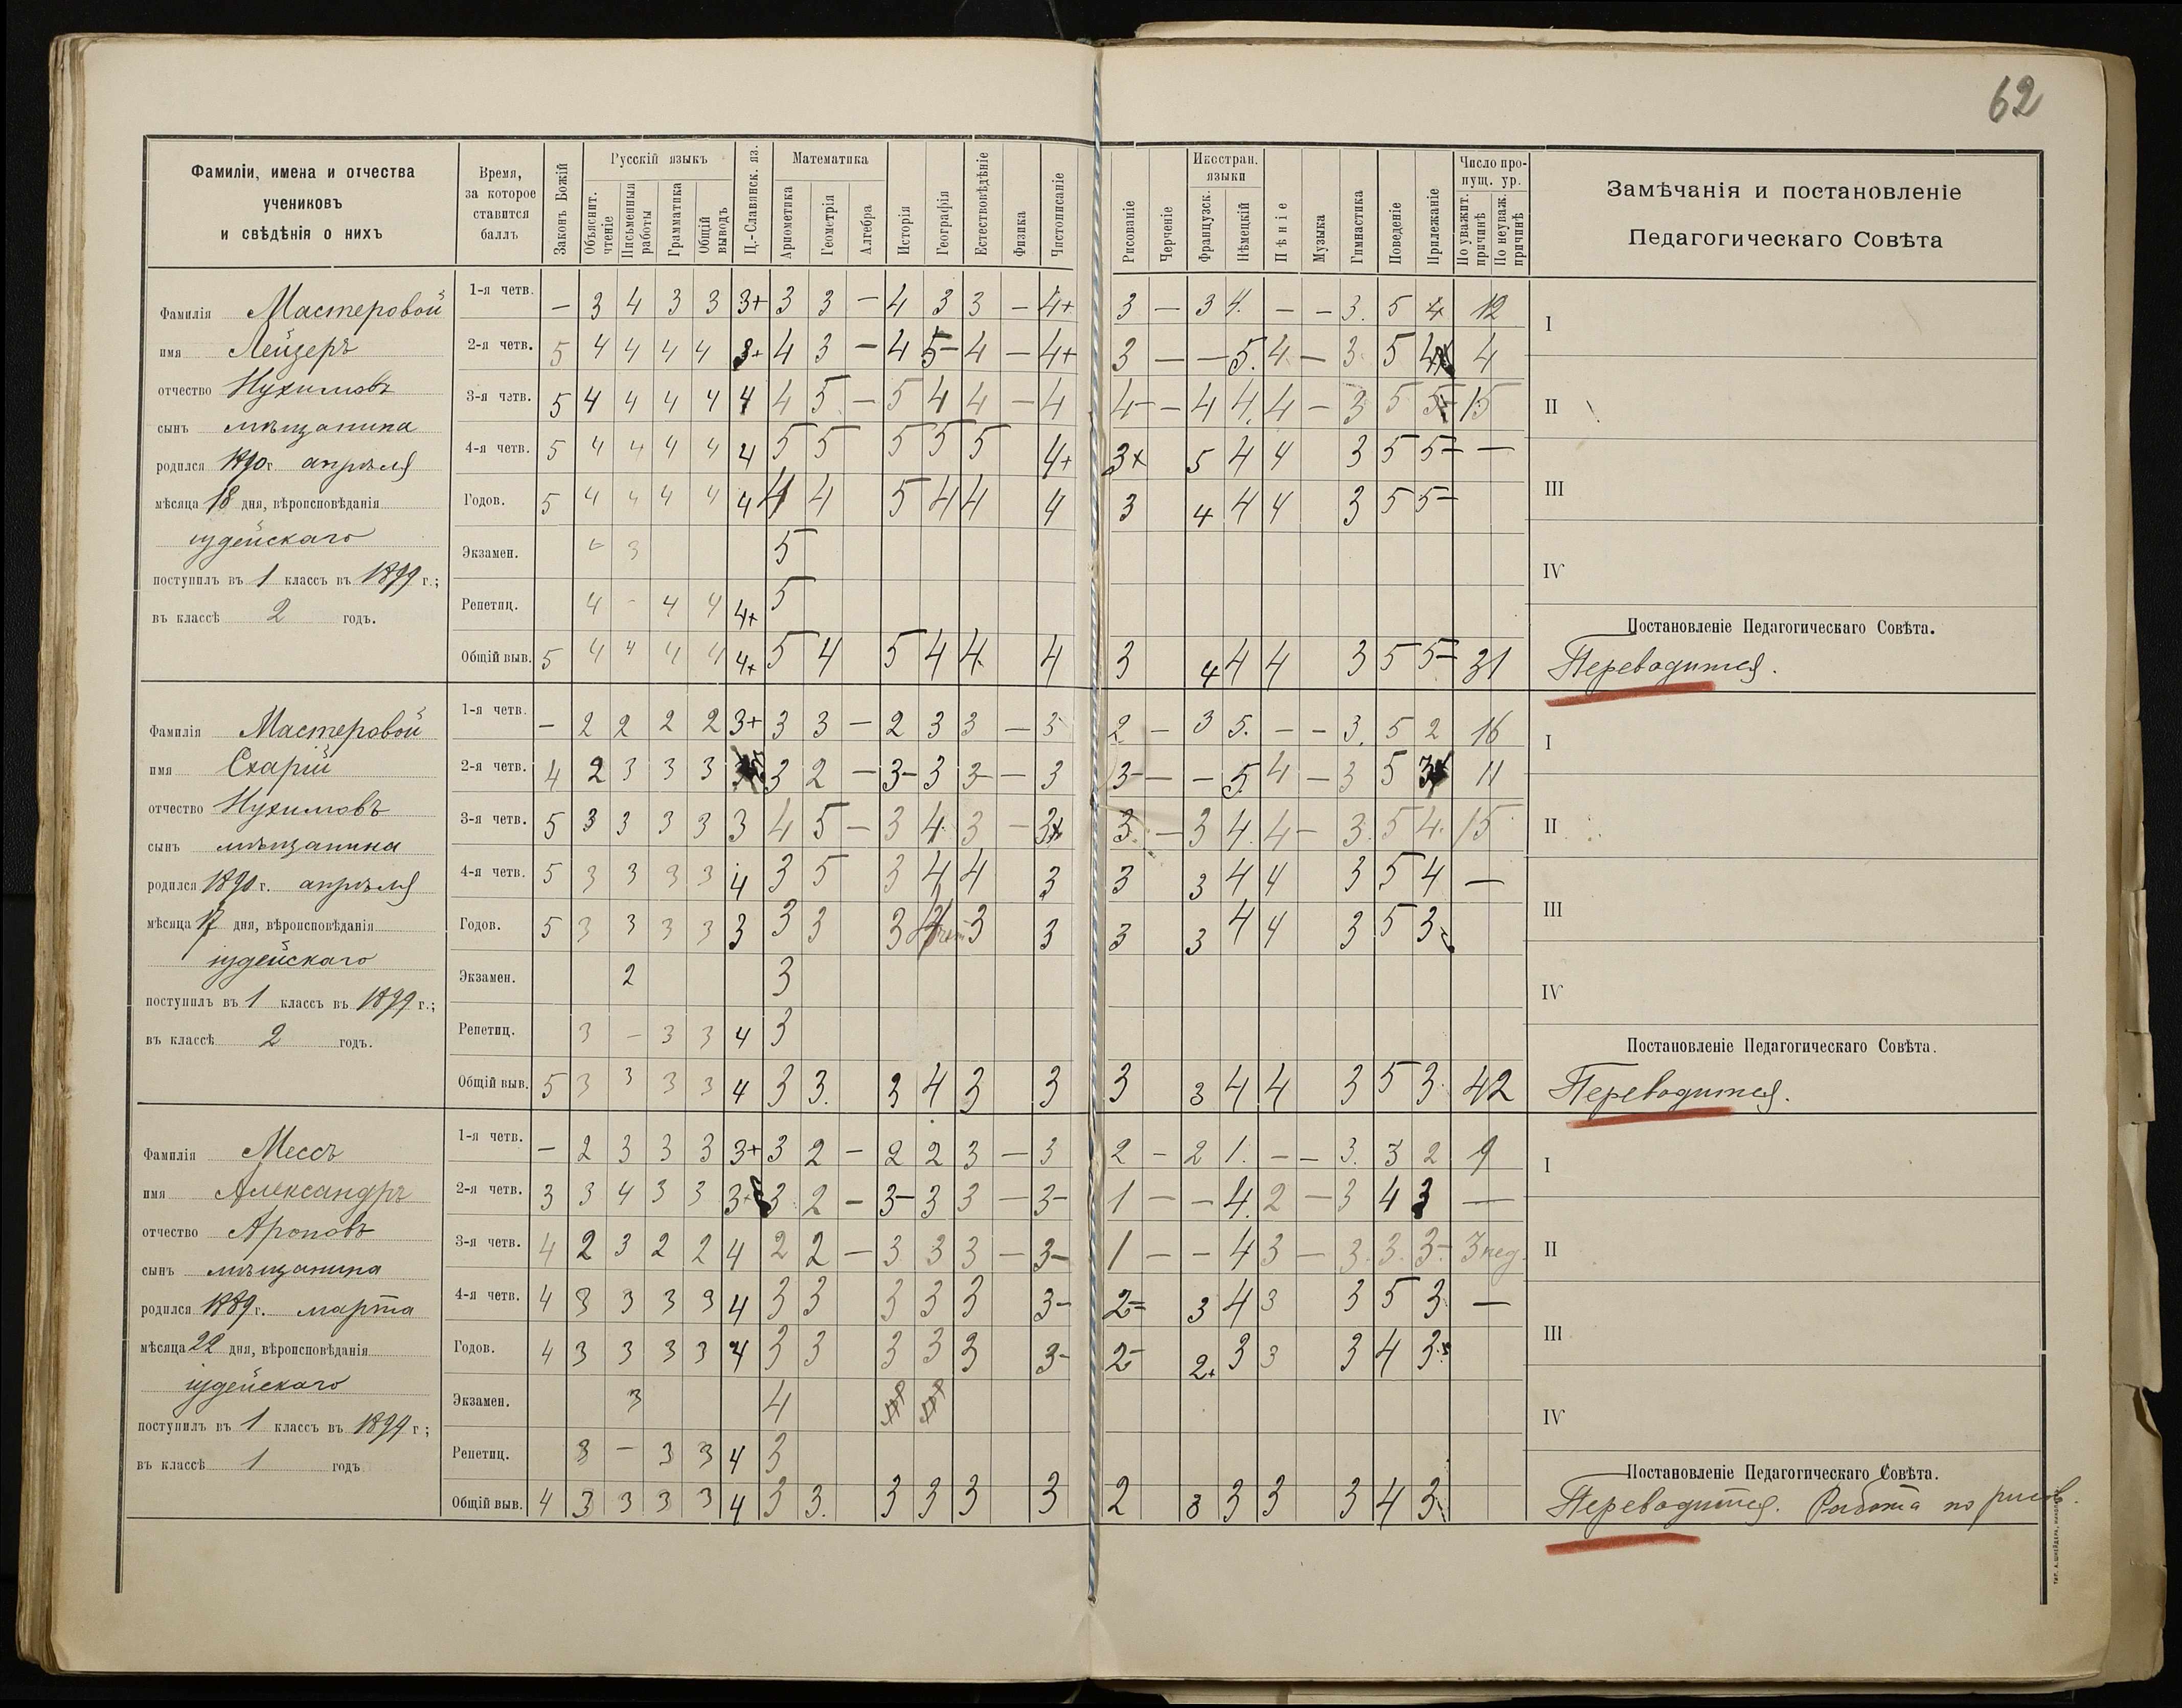 62
Фамиліи, имена и отчества
учениковъ
и свѣдѣнія о нихъ
Время,
за которое
ставится
баллъ
Законъ Божій
Русскій языкъ
Объяснит. чтеніе
Письменныя работы
Грамматика
Общій выводъ
Ц.-Славянск. яз.
Математика
Ариѳметика
Геометрія
Алгебра
Исторія
Географія
Естествовѣдѣніе
Физика
Чистописаніе
Рисованіе
Черченіе
Иностран. языки
Французск.
Нѣмецкій
Пѣніе
Музыка
Гимнастика
Поведеніе
Прилежаніе
Число пропущ. ур.
По уважит. причинѣ
По неуваж. причинѣ
Замѣчанія и постановленіе
Педагогическаго Совѣта
Фамилія Мастеровой
имя Лейзеръ
отчество Нухимовъ
сынъ мѣщанина
родился 1890 г. апрѣля
мѣсяца 18 дня, вѣроисповѣданія
іудейскаго
поступилъ въ 1 классъ въ 1899 г.;
въ классѣ 2 годъ.
1-я четв. — 3 4 3 3 3+ 3 3 — 4 3 3 — 4+ 3 — 3 4. — — 3. 5 4 12
2-я четв. 5 4 4 4 4 3+ 4 3 — 4 5- 4 — 4+ 3 — — 5. 4 — 3 5 4 4
3-я четв. 5 4 4 4 4 4 4 5 — 5 4 4 — 4 4- — 4 4. 4 — 3 5 5- 15
4-я четв. 5 4 4 4 4 4 5 5 5 5 5 4+ 3+ 5 4 4 3 5 5- —
Годов. 5 4 4 4 4 4 4 4 5 4 4 4 3 4 4 4 3 5 5-
Экзамен. 3 5
Репетиц. 4 - 4 4 4+ 5
Общій выв. 5 4 4 4 4 4+ 5 4 5 4 4 4 3 4 4 4 3 5 5- 31
I
II
III
IV
Постановленіе Педагогическаго Совѣта.
Переводится.
Фамилія Мастеровой
имя Схарій
отчество Нухимовъ
сынъ мѣщанина
родился 1890 г. апрѣля
мѣсяца 17 дня, вѣроисповѣданія
іудейскаго
поступилъ въ 1 классъ въ 1899 г.;
въ классѣ 2 годъ.
1-я четв. — 2 2 2 2 3+ 3 3 — 2 3 3 — 3 2 — 3 5. — — 3. 5 2 16
2-я четв. 4 2 3 3 3 3 2 — 3- 3 3- — 3 3- — — 5. 4 — 3 5 3 11
3-я четв. 5 3 3 3 3 3 4 5 — 3 4 3 — 3+ 3 — 3 4. 4 — 3. 5 4. 15
4-я четв. 5 3 3 3 3 4 3 5 3 4 4 3 3 3 4 4 3 5 4 —
Годов. 5 3 3 3 3 3 3 3 3 4 3 3 3 3 4 4 3 5 3
Экзамен. 2 3
Репетиц. 3 — 3 3 4 3
Общій выв. 5 3 3 3 3 4 3 3. 3 4 3 3 3 3 4 4 3 5 3 42
I
II
III
IV
Постановленіе Педагогическаго Совѣта.
Переводится.
Фамилія Мессъ
имя Александръ
отчество Ароновъ
сынъ мѣщанина
родился 1889 г. марта
мѣсяца 22 дня, вѣроисповѣданія
іудейскаго
поступилъ въ 1 классъ въ 1899 г;
въ классѣ 1 годъ
1-я четв. — 2 3 3 3 3+ 3 2 — 2 2 3 — 3 2 — 2 1. — — 3. 3 2 9
2-я четв. 3 3 4 3 3 3+ 3 2 — 3- 3 3 — 3- 1 — — 4. 2 — 3 4 3 —
3-я четв. 4 2 3 2 2 4 2 2 — 3 3 3 — 3- 1 — — 4 3 — 3. 3. 3- 3 нед.
4-я четв. 4 3 3 3 3 4 3 3 3 3 3 3- 2= 3 4 3 3 5 3 —
Годов. 4 3 3 3 3 4 3 3 3 3 3 3- 2- 2+ 3 3 3 4 3
Экзамен. 3 4
Репетиц. 3 — 3 3 4 3
Общій выв. 4 3 3 3 3 4 3 3. 3 3 3 3 2 3 3 3 3 4 3
I
II
III
IV
Постановленіе Педагогическаго Совѣта.
Переводится. Работа по рисов.